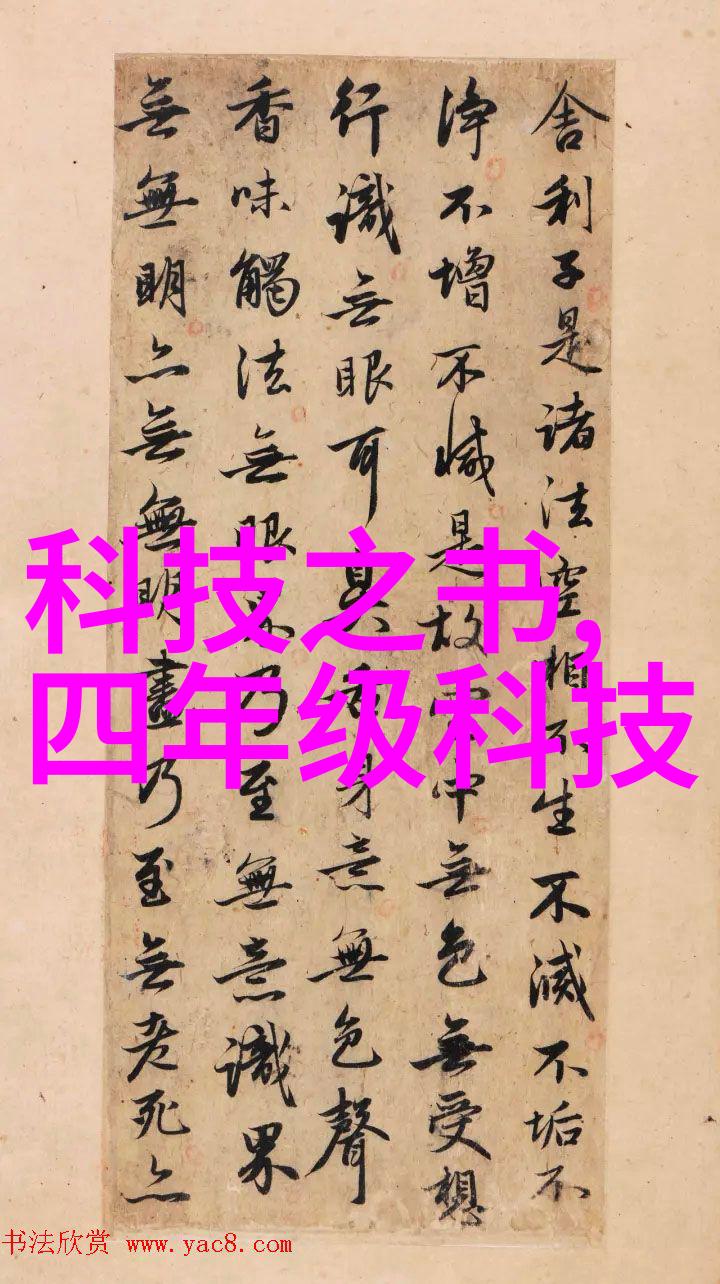 舍利子是諸法空相不生不滅不垢不
淨不增不減是故空中無色無受想
行識無眼耳鼻舌身意無色聲
香味觸法無眼界乃至無意識界
無無明亦無無明盡乃至無老死亦
科技之书,
四年级科技
书法欣赏 www.yac8.com